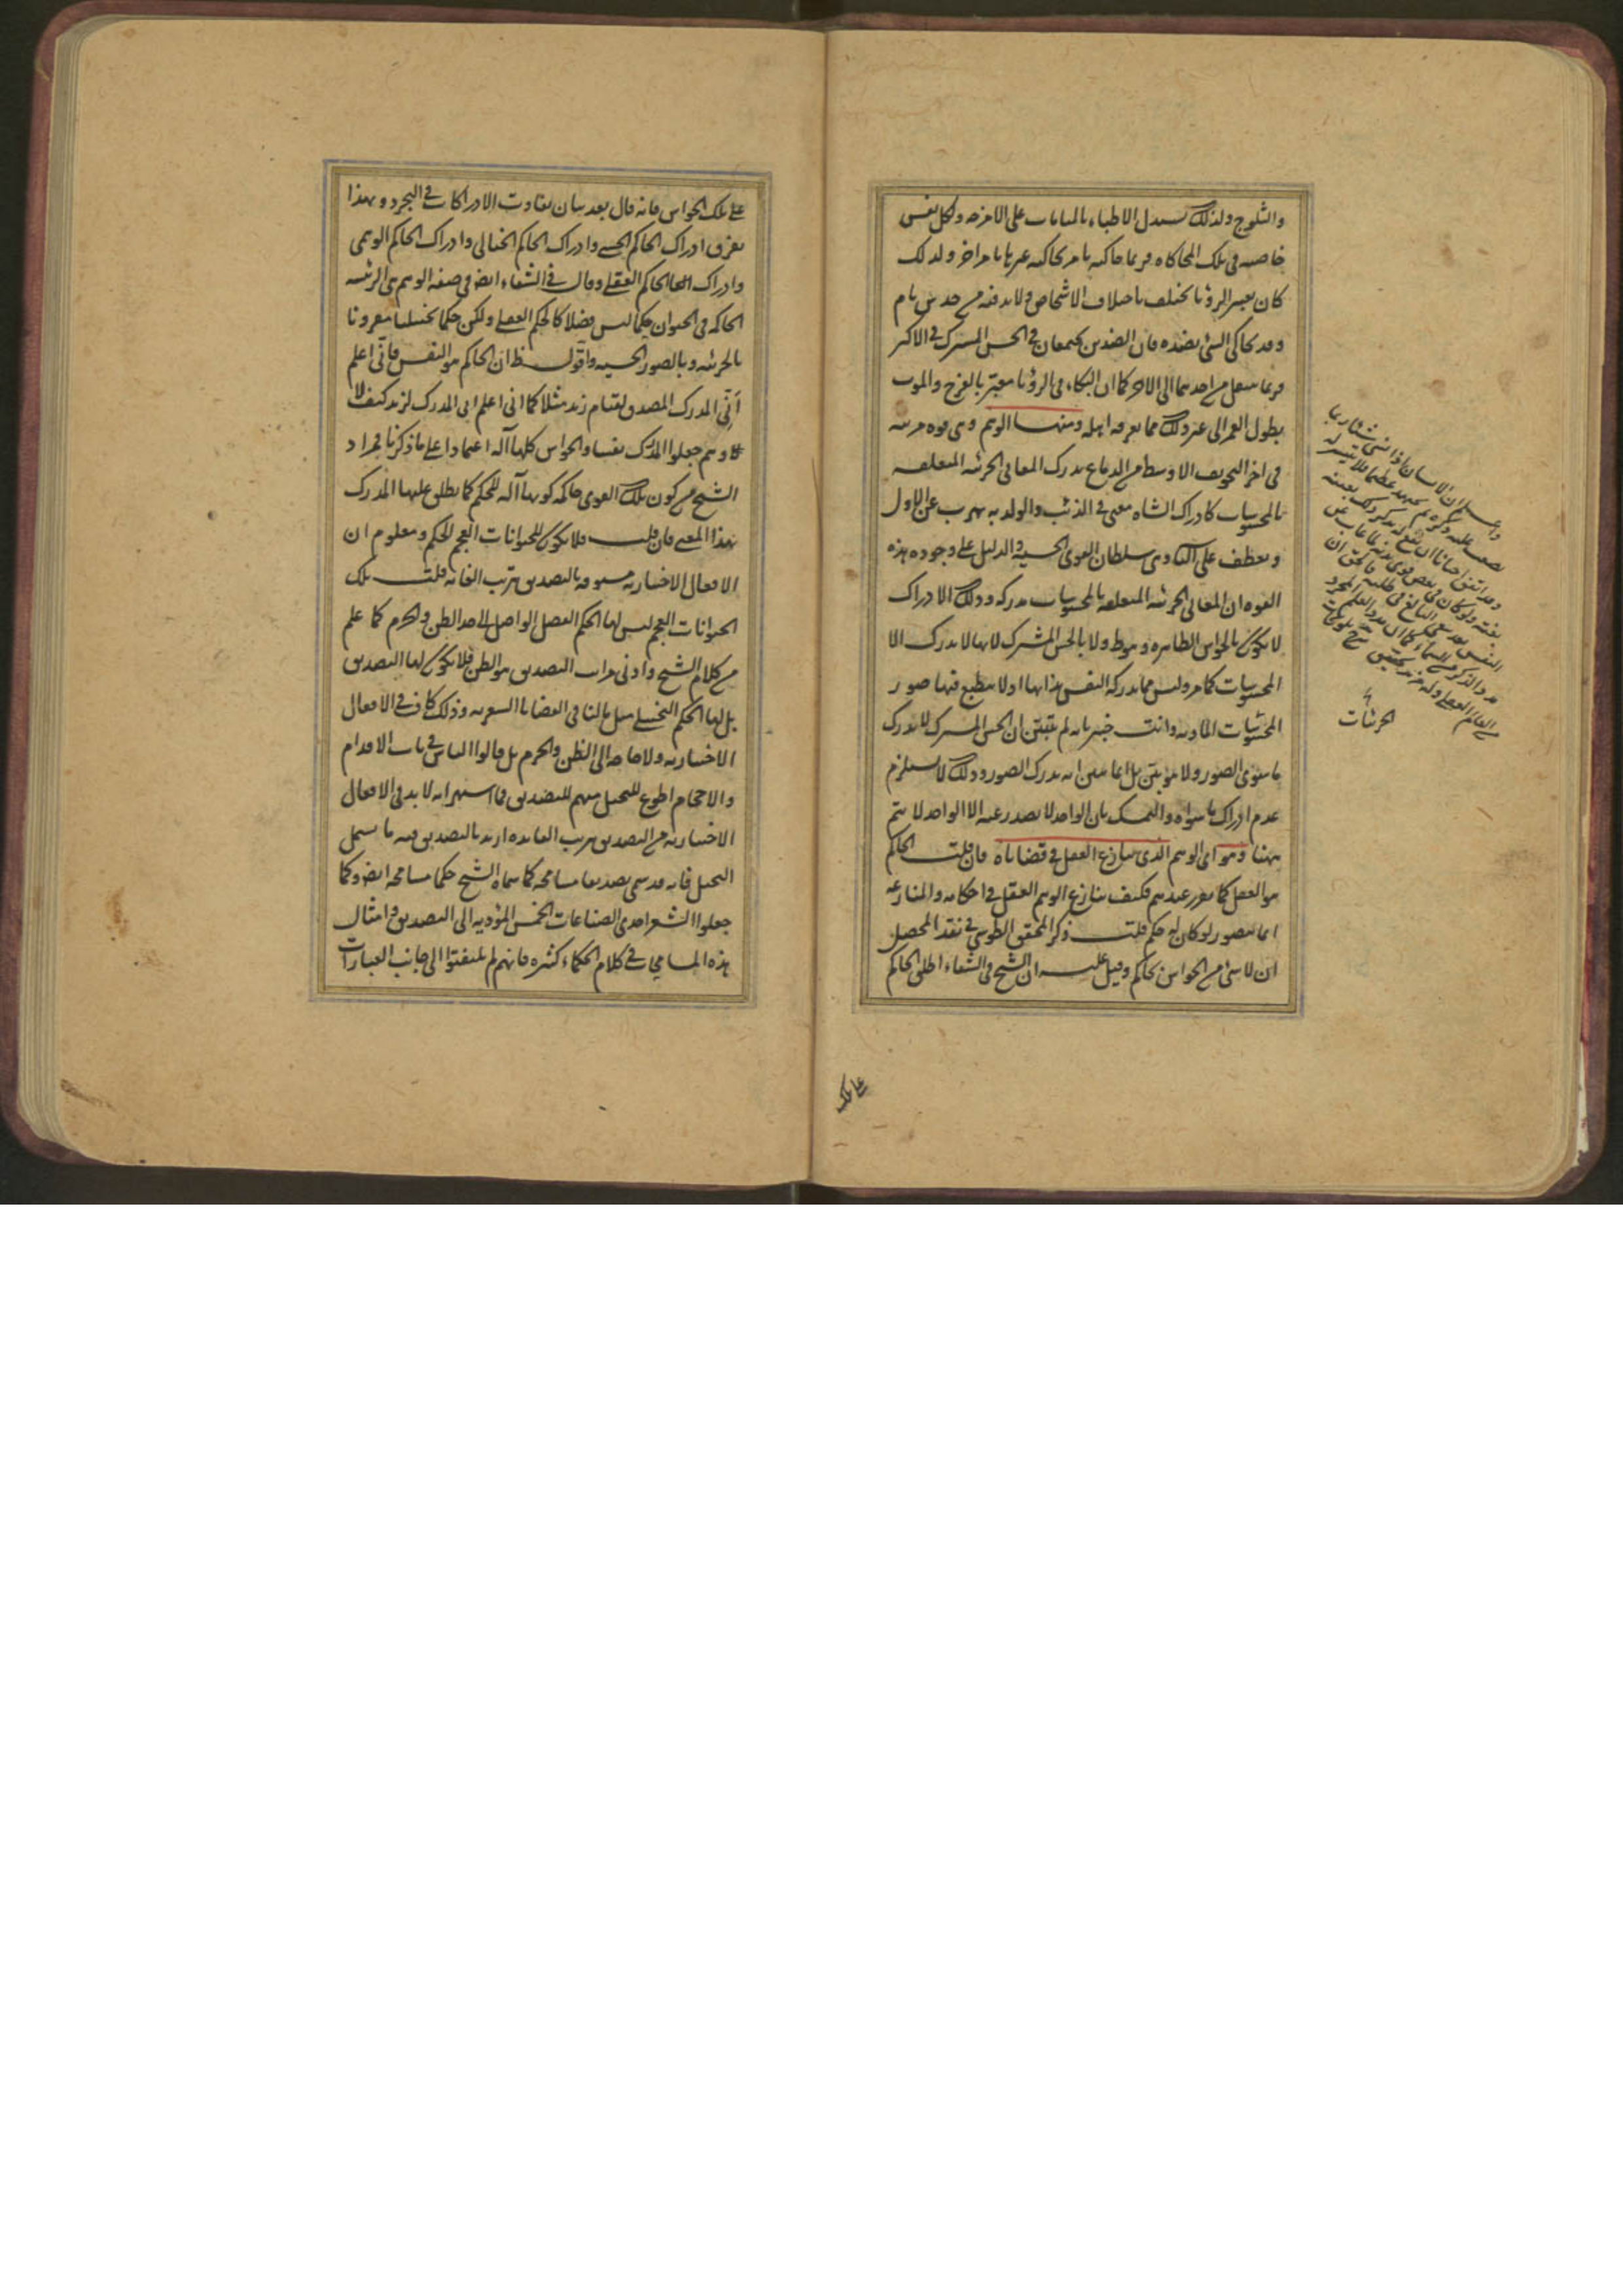 والثلوج ولذلك يستدل الاطباء بالمنامات على الامزجه ولكل نفس
خاصيه فى تلك المحاكاه فربما حاكيه بامر يحاكيه غيرها بامر اخر ولذلك
كان تعبير الرؤيا يختلف باختلاف الاشخاص ولا بد فيه من حدس تام
وقد يحاكى الشئ بضده فان الضدين يجتمعان فى الحس المشترك فى الاكثر
فربما ينتقل من احدهما الى الاخر كما ان البكاء فى الرؤيا معبّر بالفرح والموت
بطول العمر الى غير ذلك مما يعرفه اهله ومنها الوهم وهى قوه مرتبه
فى اخر التجويف الاوسط من الدماغ يدرك المعانى الجزئيه المتعلقه
بالمحسوسات كادراك الشاه معنى فى الذئب والولد به يهرب عن الاول
ويعطف على الثانى وهى سلطان القوى الحسيه والدليل على وجود هذه
القوه ان المعانى الجزئيه المتعلقه بالمحسوسات مدركه وذلك الادراك
لا يكون بالحواس الظاهره وهو ظ ولا بالحس المشترك لانها لا يدرك الا
المحسوسات كما مر وليس مما يدركه النفس بذاتها اذ لا ينطبع فيها صور
المحسوسات الماديه وانت خبير بانه لم يتبيّن ان الحس المشترك لا يدرك
ما سوى الصور ولا هو بيّن بل انما يتبين انه يدرك الصور وذلك لا يستلزم
عدم ادراك ما سواه والتمسك بان الواحد لا يصدر عنه الا الواحد لا يتم
ههنا وهو اى الوهم الذى ينازع العقل فى قضاياه فان قلت الحاكم
هو العقل كما تقرر عندهم فكيف ينازع الوهم العقل فى احكامه والمنازعه
انما يتصور لو كان له حكم قلت ذكر المحقق الطوسي فى نقد المحصل
ان لا شئ من الحواس بحاكم وقيل عليه ان الشيخ فى الشفاء اطلق الحاكم
الجزئيات
على تلك
على تلك الحواس فانه قال بعد بيان تفاوت الادراكات فى التجرد وبهذا
يفرق ادراك الحاكم الحسى وادراك الحاكم الخيالى وادراك الحاكم الوهمى
وادراك الحاكم العقلى وقال فى الشفاء ايضا فى صفة الوهم هى الرئيسه
الحاكمه فى الحيوان حكما ليس فصلا كالحكم العقلى ولكن حكما تخييليا مقرونا
بالجزئيه وبالصور الحسيه واقول ظ ان الحاكم هو النفس فانّى اعلم
انّى المدرك المصدق لقيام زيد مثلا كما انى اعلم انى المدرك لزيد كيف لا
وهم جعلوا المدرك نفسا والحواس كلها آله اعتمادا على ما ذكرنا فمراد
الشيخ من كون تلك القوى حاكمه كونها آله للحكم كما يطلق عليها المدرك
بهذا المعنى فان قلت فلا يكون للحيوانات العجم الحكم ومعلوم ان
الافعال الاختياريه مسبوقه بالتصديق بترتب الغايه قلت تلك
الحيوانات العجم ليس لها الحكم الفصل الواصل الى حد الظن والجزم كما علم
من كلام الشيخ وادنى مراتب التصديق هو الظن فلا يكون لها التصديق
بل لها الحكم التخييلى مثل ما لنا فى القضايا الشعريه وذلك كاف فى الافعال
الاختياريه ولا حاجه الى الظن والجزم بل قالوا الناس فى باب الاقدام
والاحجام اطوع للتخيل منهم للتصديق فما اشتهر انه لا بد فى الافعال
الاختياريه من التصديق بترتب الفايده اريد بالتصديق فيه ما يشمل
التخيل فانه قد سمى تصديقا مسامحه كما سماه الشيخ حكما مسامحه ايضا وكما
جعلوا الشعر احدى الصناعات الخمس المؤديه الى التصديق وامثال
هذه المسامحى فى كلام الحكماء كثيره فانهم لم يلتفتوا الى جانب العبارات